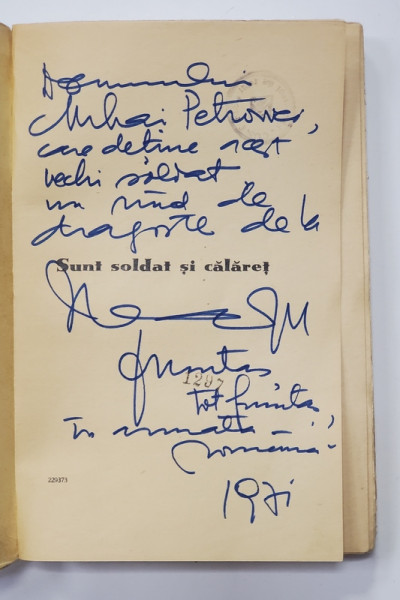 Domnului
Mihai Petrovici,
care deține acest
vechi soldat
un rînd de
dragoste de la
Sunt soldat și călăreț
fruntaș
1297
tot fruntaș
în armata
română
1971
229373